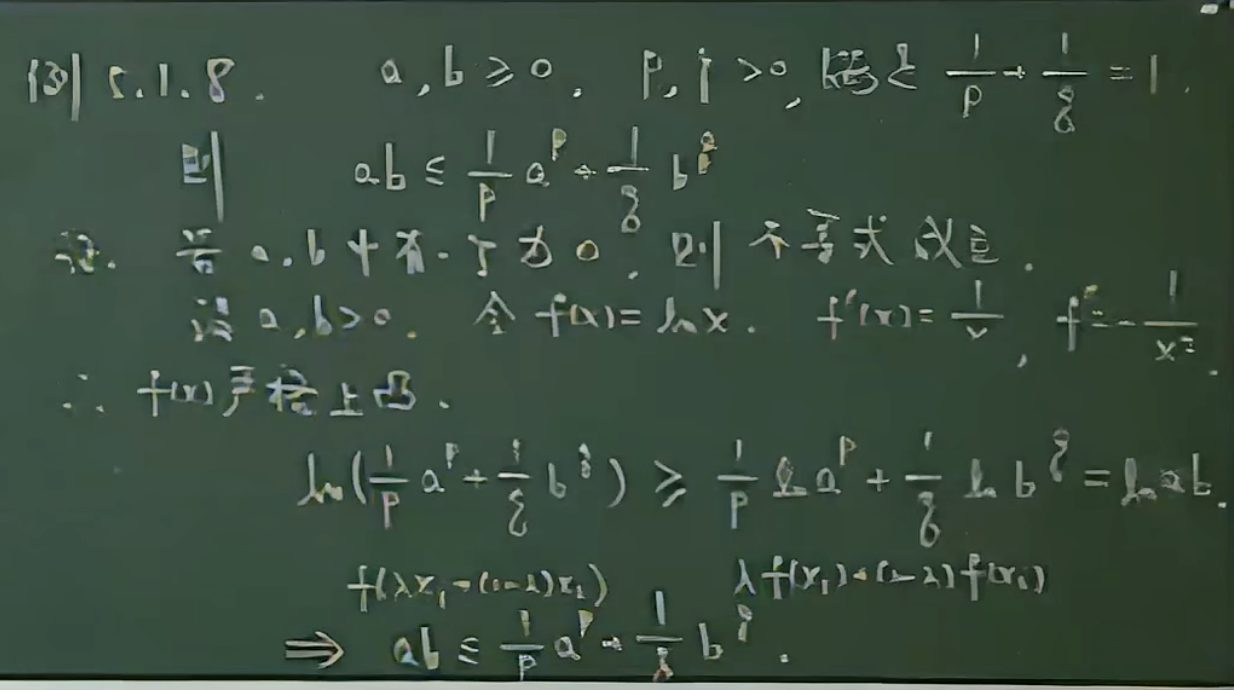 例 5.1.8. a, b ≥ 0, p, q > 0, 满足 1/p + 1/q = 1.
则 ab ≤ 1/p a^p + 1/q b^q
证. 若 a, b 中有一个为 0, 则不等式成立.
设 a, b > 0. 令 f(x) = ln x. f'(x) = 1/x, f'' = -1/x².
∴ f(x) 严格上凸.
ln(1/p a^p + 1/q b^q) ≥ 1/p ln a^p + 1/q ln b^q = ln ab.
f(λx₁ + (1-λ)x₂) λf(x₁) + (1-λ)f(x₂)
⇒ ab ≤ 1/p a^p + 1/q b^q.